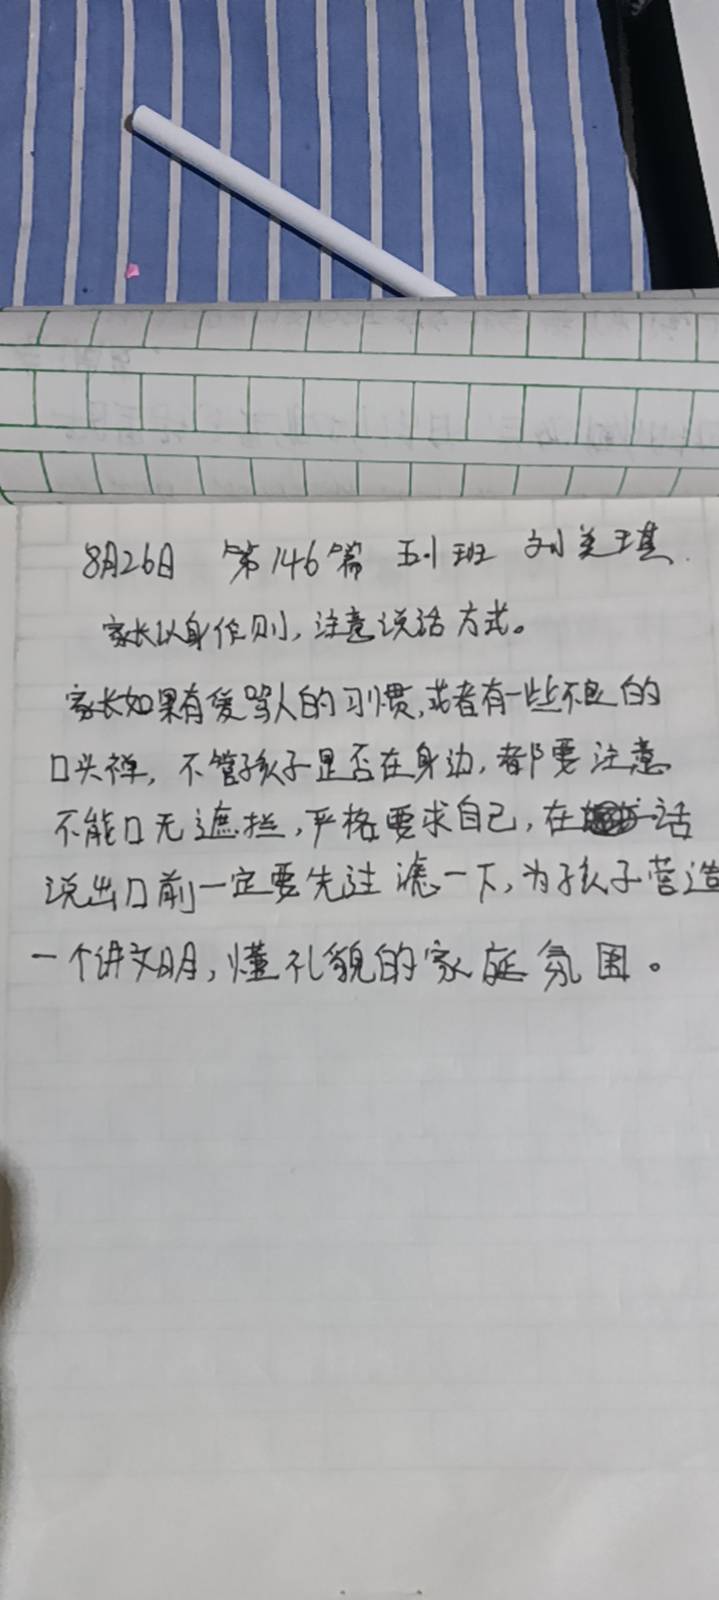 8月26日 第146篇 五1班 刘美琪
家长以身作则，注意说话方式。
家长如果有爱骂人的习惯，或者有一些不良的
口头禅，不管孩子是否在身边，都要注意
不能口无遮拦，严格要求自己，在话
说出口前一定要先过滤一下，为孩子营造
一个讲文明，懂礼貌的家庭氛围。